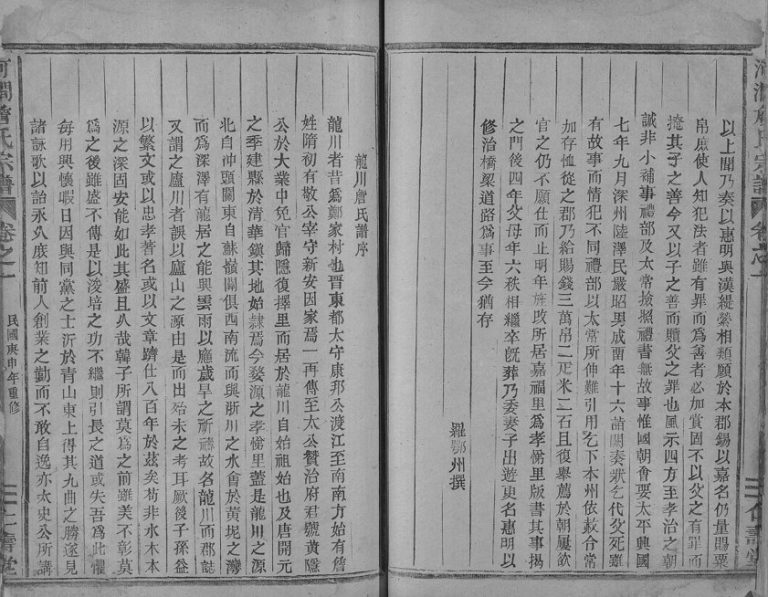 河間詹氏宗譜
卷之一
仁壽堂
以上聞乃奏以惠明與漢緹縈相類願於本郡錫以嘉名仍量賜粟
帛庶使人知犯法者雖有罪而爲善者必加賞固不以父之有罪而
掩其子之善今又以子之善而贖父之罪也風示四方至孝治之朝
誠非小補事禮部及太常撿照禮書無故事惟國朝會要太平興國
七年九月深州陸澤民嚴昭男成賈年十六詣闕奏狀乞代父死雖
有故事而情犯不同禮部以太常所伸難引用乞下本州依赦合常
加存恤從之郡乃給賜錢三萬帛二疋米二石且復舉薦於朝屢欲
官之仍不願仕而止明年旌改所居嘉福里爲孝悌里版書其事揭
之門後四年父母年六秩相繼卒旣葬乃委妻子出遊更名惠明以
修治橋梁道路爲事至今猶存
羅鄂州撰
龍川詹氏譜序
龍川者昔爲鄭家村也晋東都太守康邦公渡江至南南方始有詹
姓隋初有敬公宰守新安因家焉一再傳至太公贊治府君號黄隱
公於大業中免官歸隱復擇里而居於龍川自始祖始也及唐開元
之季建縣於清華鎮其地始隸焉今婺源之孝悌里蓋是龍川之源
北自沖頭關東自蘇嶺關俱西南流而與浙川之水會於黄坭之灣
而爲深澤有龍居之能興雲雨以應歲旱之祈禱故名龍川而郡誌
又謂之廬川者誤以廬山之源由是而出殆未之考耳厥後子孫益
以繁文或以忠孝著名或以文章躋仕八百年於茲矣苟非水木本
源之深固安能如此其盛且久哉韓子所謂莫爲之前雖美不彰莫
爲之後雖盛不傳是以浚培之功不繼則引長之道或失吾爲此懼
每用興懷暇日因與同黨之士沂於青山東上得其九曲之勝遂見
諸詠歌以詒永久庶知前人創業之勤而不敢自逸亦太史公所講
河間詹氏宗譜
卷之一
民國庚申年重修
一
仁壽堂